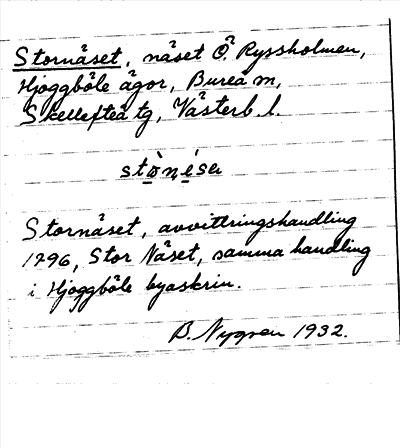 Stornäset, näset Ö. Ryssholmen,
Hjoggböle ägor, Bureå sn,
Skellefteå tg, Västerb. l.
Stornäset, avvittringshandling
1796, Stor Näset, samma handling
i Hjoggböle byaskrin.
B. Nygren 1932.